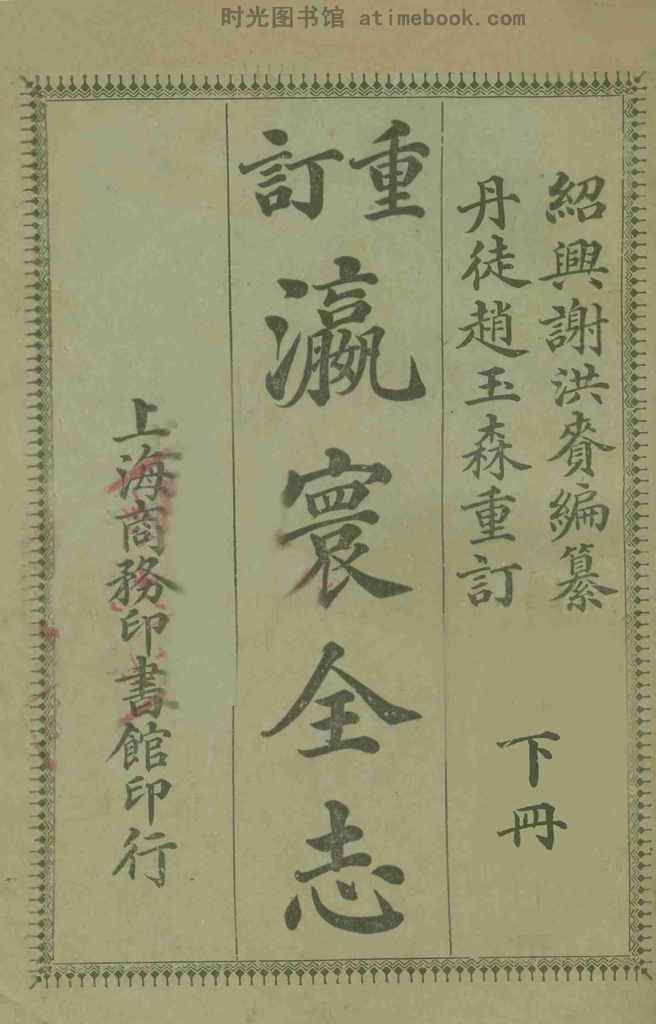 时光图书馆 atimebook.com
紹興謝洪賚編纂
丹徒趙玉森重訂
下冊
重訂
瀛寰全志
上海商務印書館印行